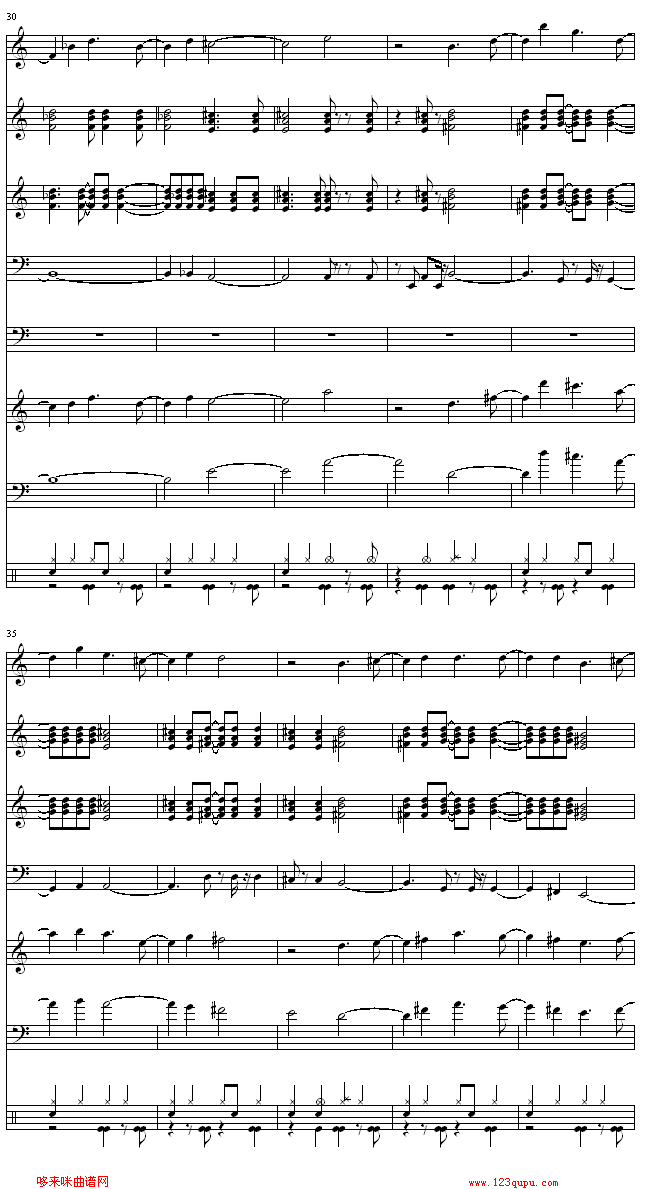 30
35
哆来咪曲谱网
www.123qupu.com